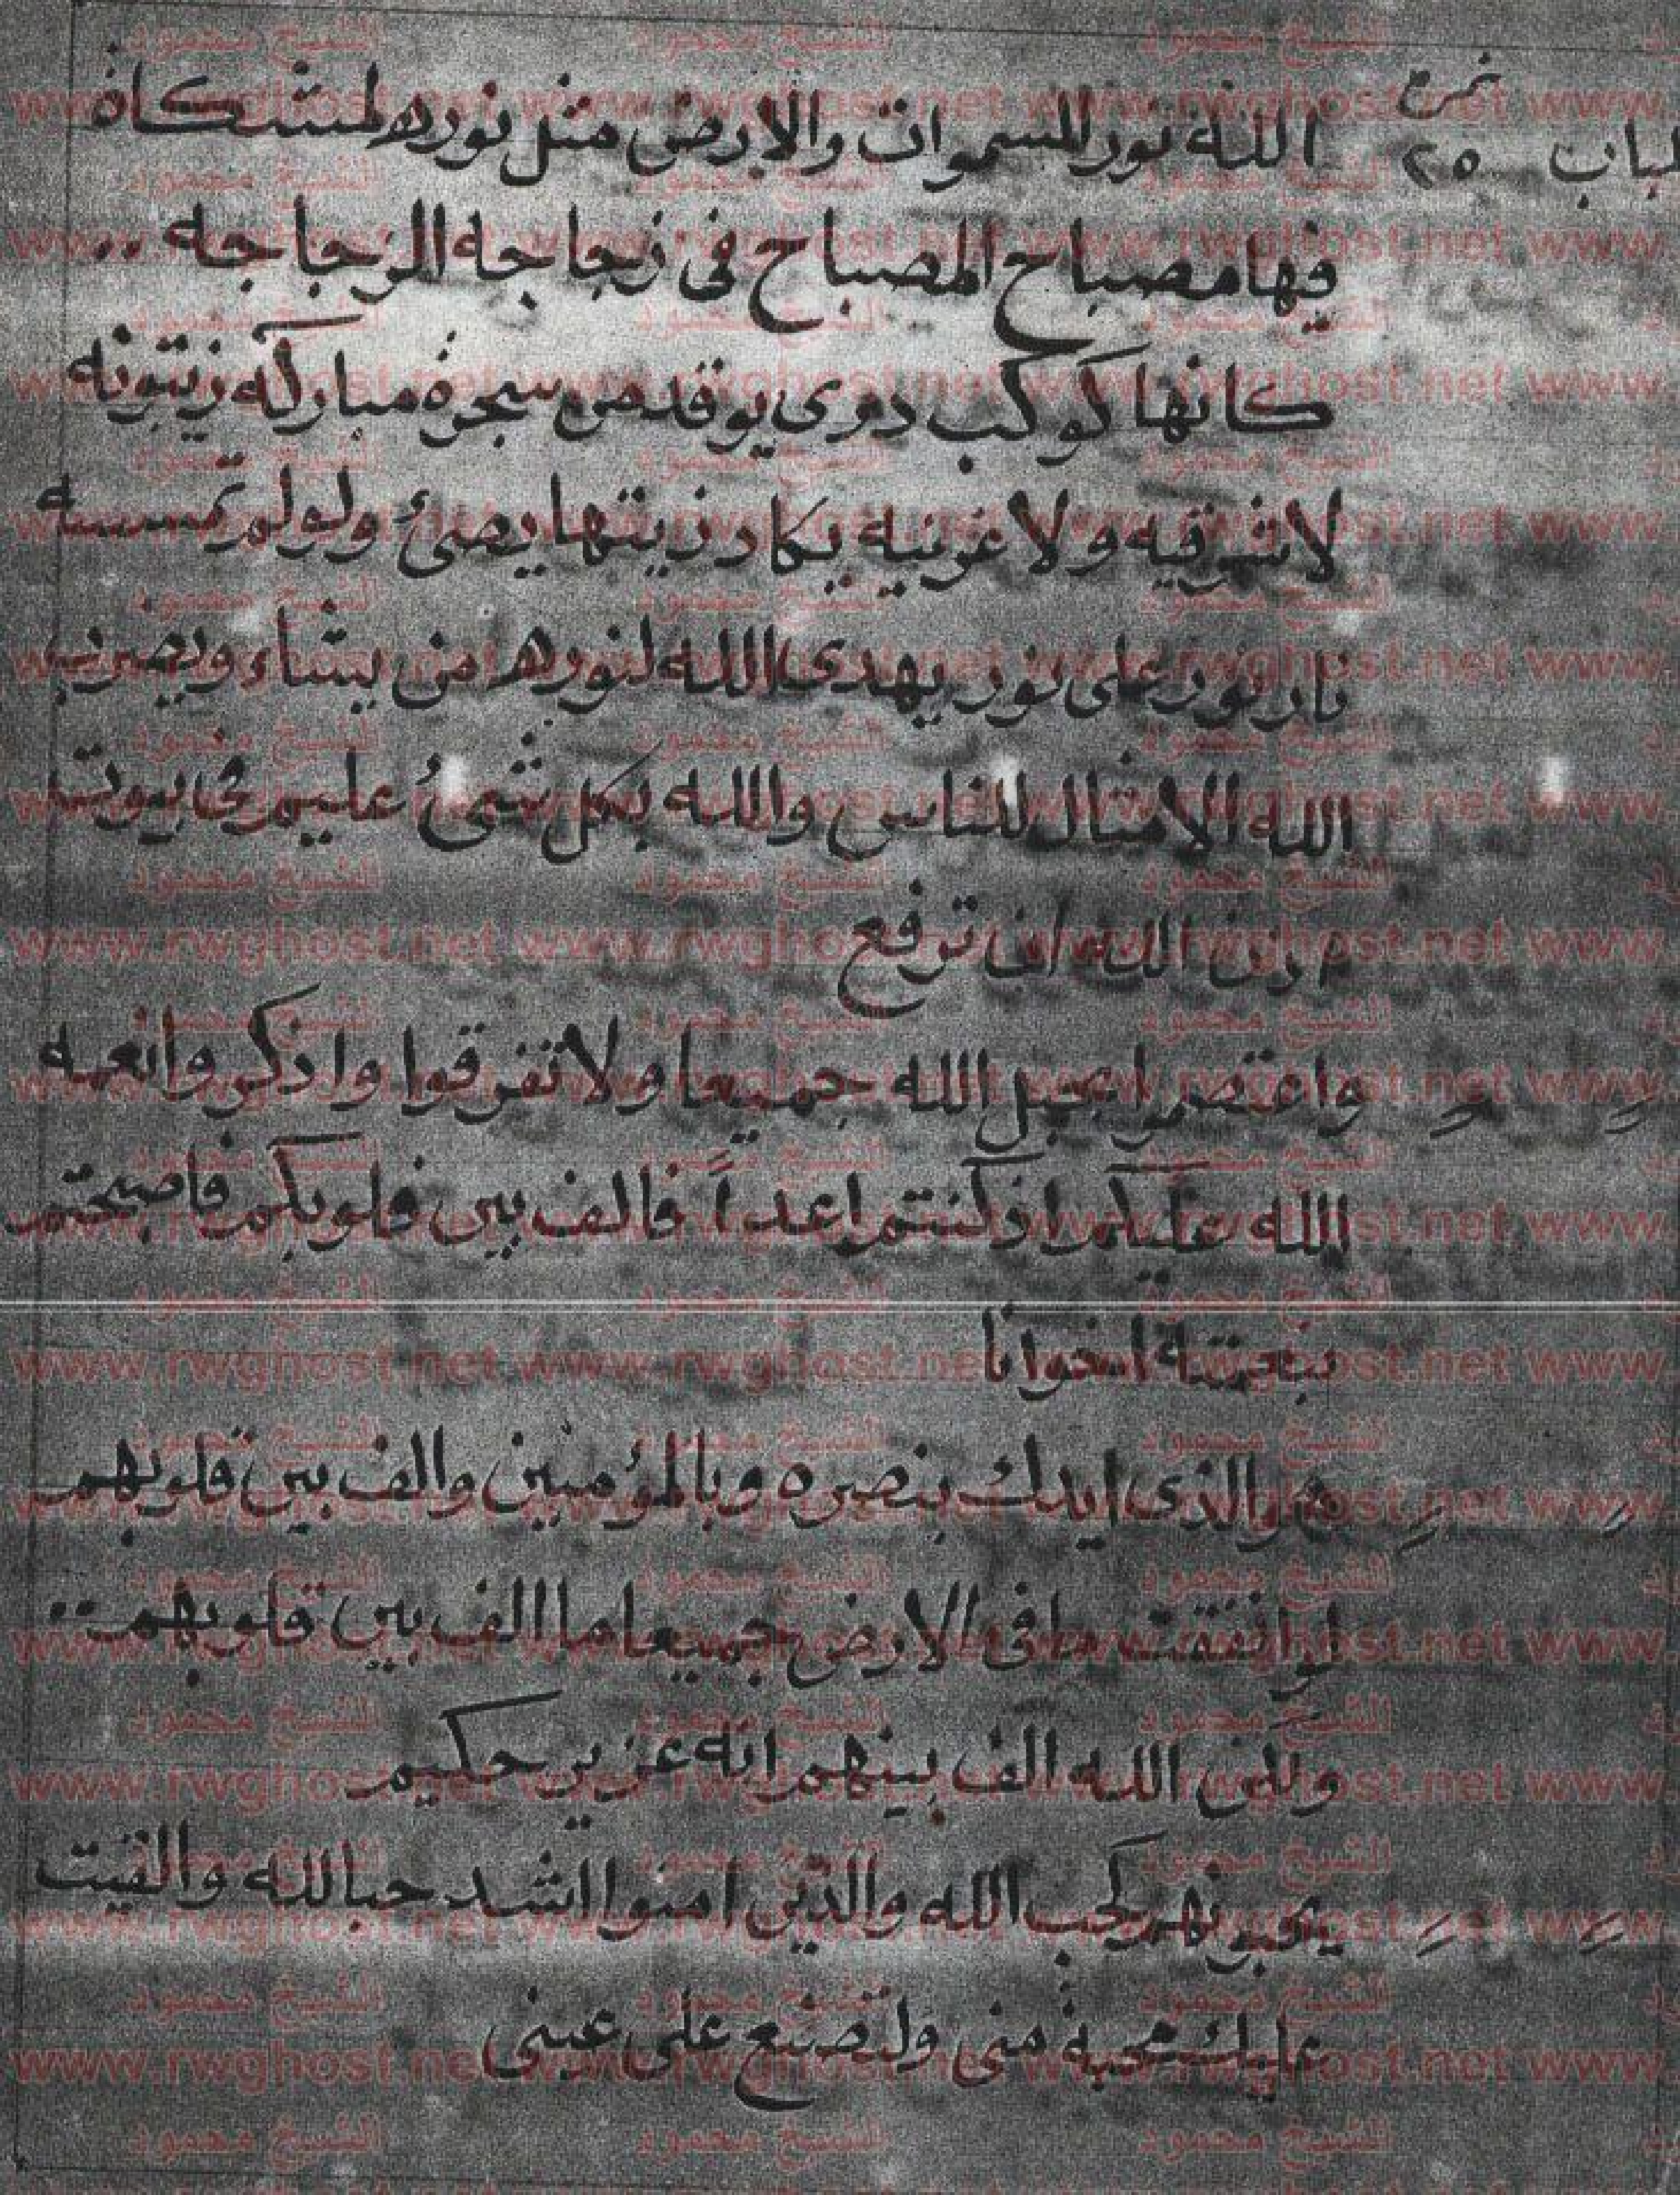 نمره
الباب ٢٥
الله نور السموات والارض مثل نوره كمشكاة
فيها مصباح المصباح في زجاجه الزجاجه ..
كانها كوكب دوى يوقد من سجرة مباركه زيتونه
لا شرقيه ولا غربيه يكاد زيتها يضئ ولو لم تمسسه
نار نور على نور يهدى الله لنوره من يشاء ويضرب
الله الامثال للناس والله بكل شئ عليم في بيوت
الله ان ترفع
واعتصموا بحبل الله جميعا ولا تفرقوا واذكروا نعمه
الله عليكم اذ كنتم اعداً فالف بين قلوبكم فاصبحتم
بنعمته اخوانا
هو الذى ايدك بنصره وبالمؤمنين والف بين قلوبهم
لو انفقت ما فى الارض جميعا ما الف بين قلوبهم ..
ولكن الله الف بينهم انه عزيز حكيم
يحبونهم كحب الله والذين امنوا اشد حبا لله والقيت
عليك محبة منى ولتصنع على عينى
www.rwghost.net
الشيخ محمود